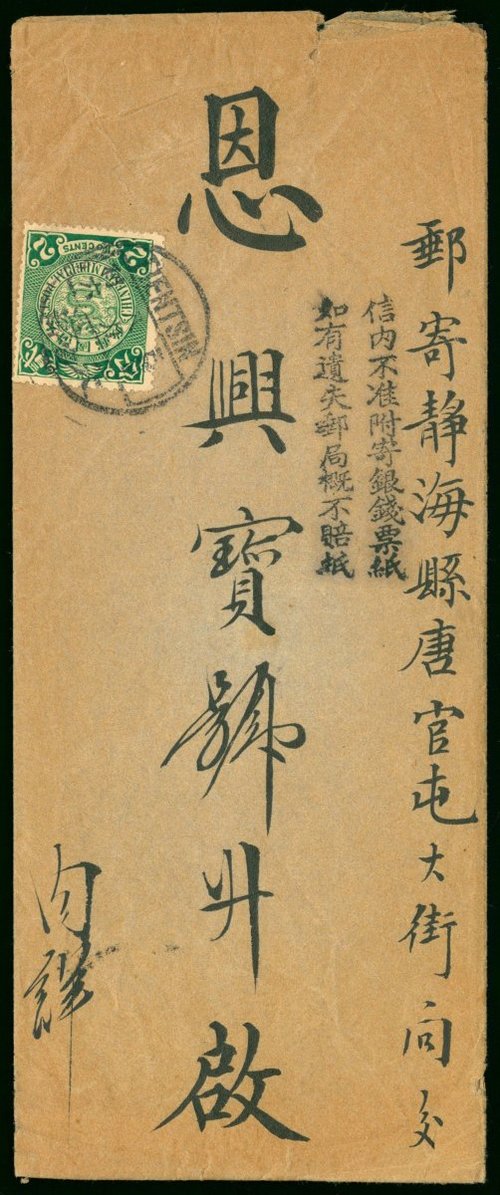 郵寄靜海縣唐官屯大街向交
信内不准附寄銀錢票紙
如有遺失郵局概不賠紙
恩興寶號升啟
内詳
2
2
CENTS
TIENTSIN